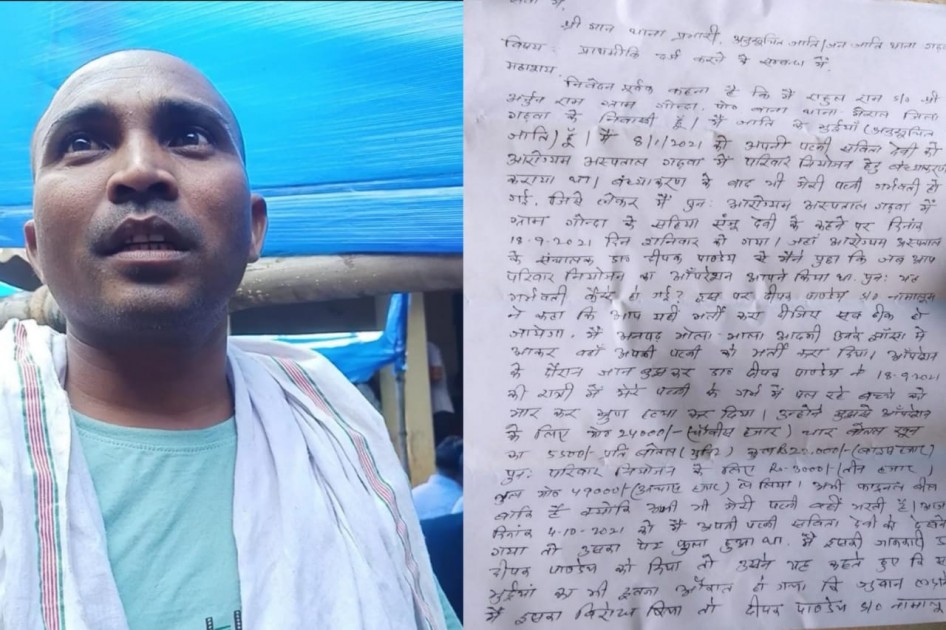 सेवा में,
श्री मान थाना प्रभारी, अनुसूचित जाति/जन जाति थाना गढ़वा
विषय :- प्राथमीकि दर्ज करने के सम्बन्ध में
महाशय,
निवेदन पूर्वक कहना है कि मैं राहुल राम S/O श्री
अर्जुन राम ग्राम गोन्दा, पो० बाना थाना मेराल जिला
गढ़वा के निवासी हूँ। मैं जाति के भुईयाँ (अनुसूचित
जाति) हूँ। मैं 8/1/2021 को अपनी पत्नी सविता देवी को
आरोग्यम अस्पताल गढ़वा में परिवार नियोजन हेतु बंध्याकरण
कराया था। बंध्याकरण के बाद भी मेरी पत्नी गर्भवती हो
गई, जिसे लेकर मैं पुनः आरोग्यम अस्पताल गढ़वा में
ग्राम गोन्दा के सहिया संजू देवी के कहने पर दिनांक
18-9-2021 दिन शनिवार को गया। जहाँ आरोग्यम अस्पताल
के संचालक डा० दीपक पाण्डेय से मैंने पुछा कि जब आप
परिवार नियोजन का ऑपरेशन आपने किया था पुनः यह
गर्भवती कैसे हो गई? इस पर दीपक पाण्डेय S/O नामालूम
ने कहा कि आप यहाँ भर्ती करा दीजिए सब ठीक हो
जायेगा, मैं अनपढ़ भोला-भाला आदमी उनके झाँसा में
आकर वहाँ अपनी पत्नी को भर्ती करा दिया। ऑपरेशन
के दौरान जान बुझ कर डा० दीपक पाण्डेय ने 18-9-2021
की रात्री में मेरे पत्नी के गर्भ में पल रहे बच्चे को
मार कर भ्रुण हत्या कर दिया। उन्होंने मुझसे ऑपरेशन
के लिए मो० 24000/- (चौबीस हजार) चार बोतल खून
का 5500/- प्रति बोतल (यूनिट) कुल 22,000/- (बाइस हजार)
पुनः परिवार नियोजन के लिए Rs. 3000/- (तीन हजार)
कुल मो० 49000/- (उन्चास हजार) ले लिया। अभी फाइनल बील
बाकि है क्योंकि अभी भी मेरी पत्नी वहीं भरती है। आज
दिनांक 4-10-2021 को मैं अपनी पत्नी सविता देवी को देखने
गया तो उसका पेट फुला हुआ था, मैं इसकी जानकारी डा०
दीपक पाण्डेय को दिया तो उसने यह कहते हुए कि
भुईयां का भी इतना औकात हो गया कि जुबान लड़ाने
मैं इसका विरोध किया तो दीपक पाण्डेय S/O नामालूम